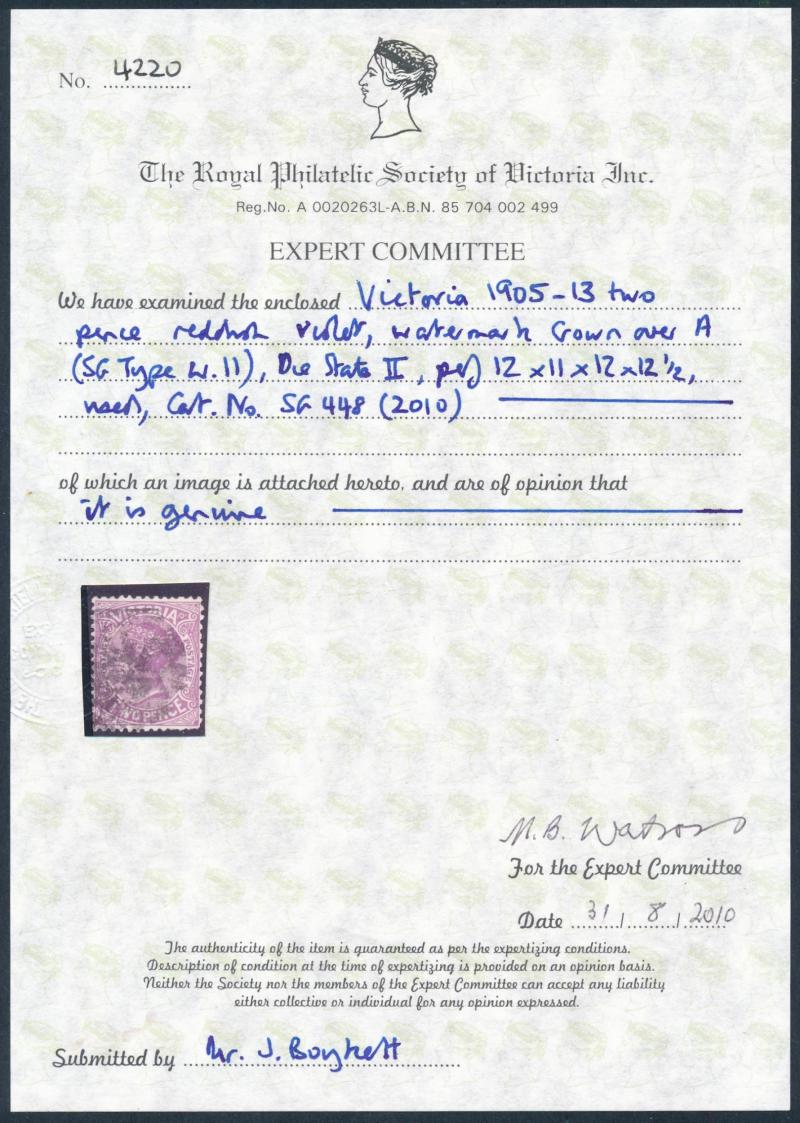 No. 4220
The Royal Philatelic Society of Victoria Inc.
Reg.No. A 0020263L-A.B.N. 85 704 002 499
EXPERT COMMITTEE
We have examined the enclosed Victoria 1905-13 two
pence reddish violet, watermark Crown over A
(SG Type W.11), Die State II, perf 12 x 11 x 12 x 12½,
used, Cat. No. SG 448 (2010)
of which an image is attached hereto, and are of opinion that
it is genuine
VICTORIA
POSTAGE
TWO PENCE
M.B. Watson
For the Expert Committee
Date 31 / 8 / 2010
The authenticity of the item is guaranteed as per the expertizing conditions.
Description of condition at the time of expertizing is provided on an opinion basis.
Neither the Society nor the members of the Expert Committee can accept any liability
either collective or individual for any opinion expressed.
Submitted by Mr. J. Boykett